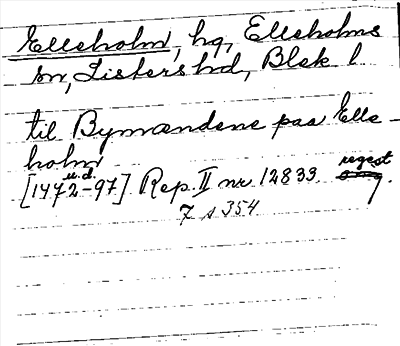 Elleholm, hg, Elleholms
sn, Listers hd, Blek l
til Bymændene paa Elle-
holm
u.d.
[1472-97] Rep. II nr 12833 regest
7 s 354